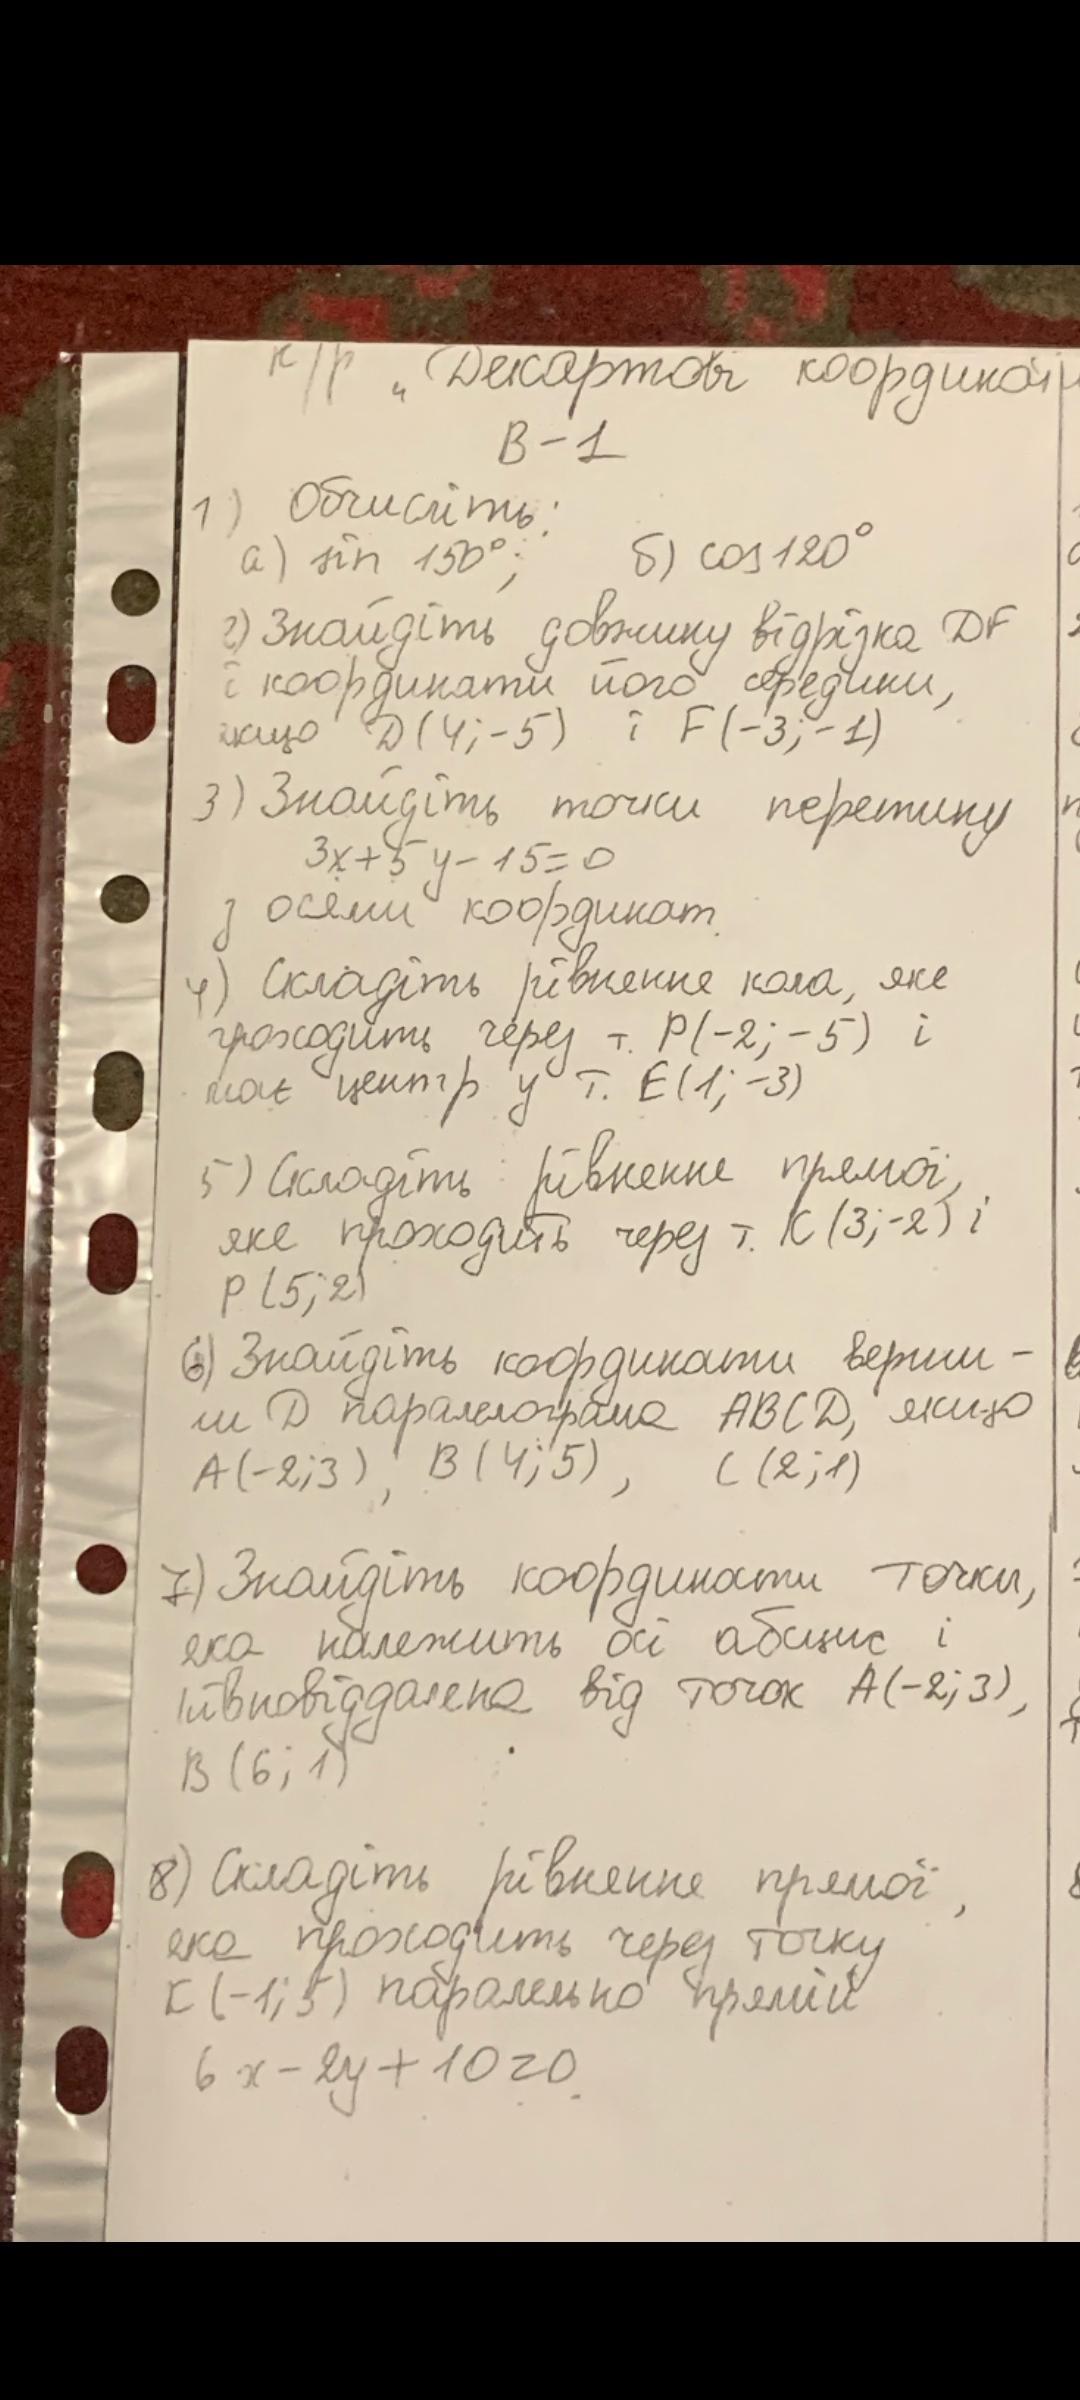 к/р „Декартові координати
В-1
1) Обчисліть:
а) sin 150°; б) cos 120°
2) Знайдіть довжину відрізка DF
і координати його середини,
якщо D(4;-5) і F(-3;-1)
3) Знайдіть точки перетину
3x+5y-15=0
з осями координат.
4) Складіть рівнення кола, яке
проходить через т. P(-2;-5) і
має центр у т. E(1;-3)
5) Складіть рівнення прямої,
яке проходить через т. K(3;-2) і
P(5;2)
6) Знайдіть координати верши-
ни D паралелограма ABCD, якщо
A(-2;3), B(4;5), C(2;1)
7) Знайдіть координати точки,
яка належить осі абцис і
рівновіддалена від точок A(-2;3),
B(6;1)
8) Складіть рівнення прямої,
яка проходить через точку
K(-1;5) паралельно прямій
6x-2y+10=0.